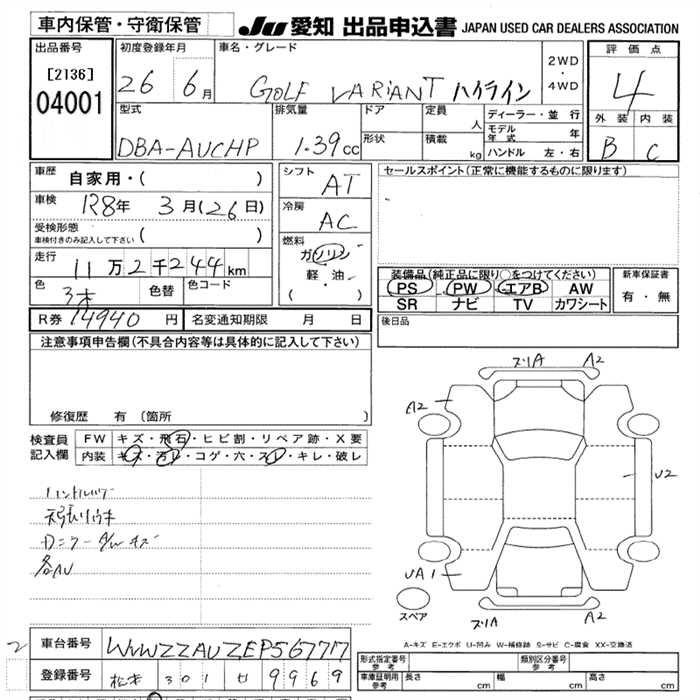 車内保管・守衛保管
JU 愛知 出品申込書 JAPAN USED CAR DEALERS ASSOCIATION
出品番号
[2136]
04001
初度登録年月
26 6月
車名・グレード
GOLF VARIANT ハイライン
2WD
・
4WD
評価点
4
外装 内装
B C
型式
DBA-AUCHP
排気量
1.39cc
ドア
形状
定員
人
積載
kg
ディーラー・並行
モデル年式 年
ハンドル 左・右
車歴
自家用・( )
車検
R8年 3月(26日)
受検形態
車検付きのみ記入して下さい ( )
走行
11万2千244km
色
色替
色コード
シフト
AT
冷房
AC
燃料
ガソリン
軽・油
( )
セールスポイント(正常に機能するものに限ります)
装備品(純正品に限り○をつけてください)
PS PW エアB AW
SR ナビ TV カワシート
新車保証書
有・無
R券 14940円
名変通知期限 月 日
後日品
注意事項申告欄(不具合内容等は具体的に記入して下さい)
修復歴 有(箇所
検査員
記入欄
FW キズ・飛石・ヒビ割・リペア跡・X要
内装 キズ・汚レ・コゲ・穴・スレ・キレ・破レ
各AU
ズリA A2
A2
U2
UA1
スペア
ズリA A2
A-キズ E-エクボ U-凹み W-補修跡 S-サビ C-腐食 XX-交換済
2
車台番号
WVWZZZAUZEP567717
登録番号
松本 301 せ 9969
形式指定番号
参考
類別区分番号
参考
車庫証明用
参考
長さ cm
幅 cm
高さ cm